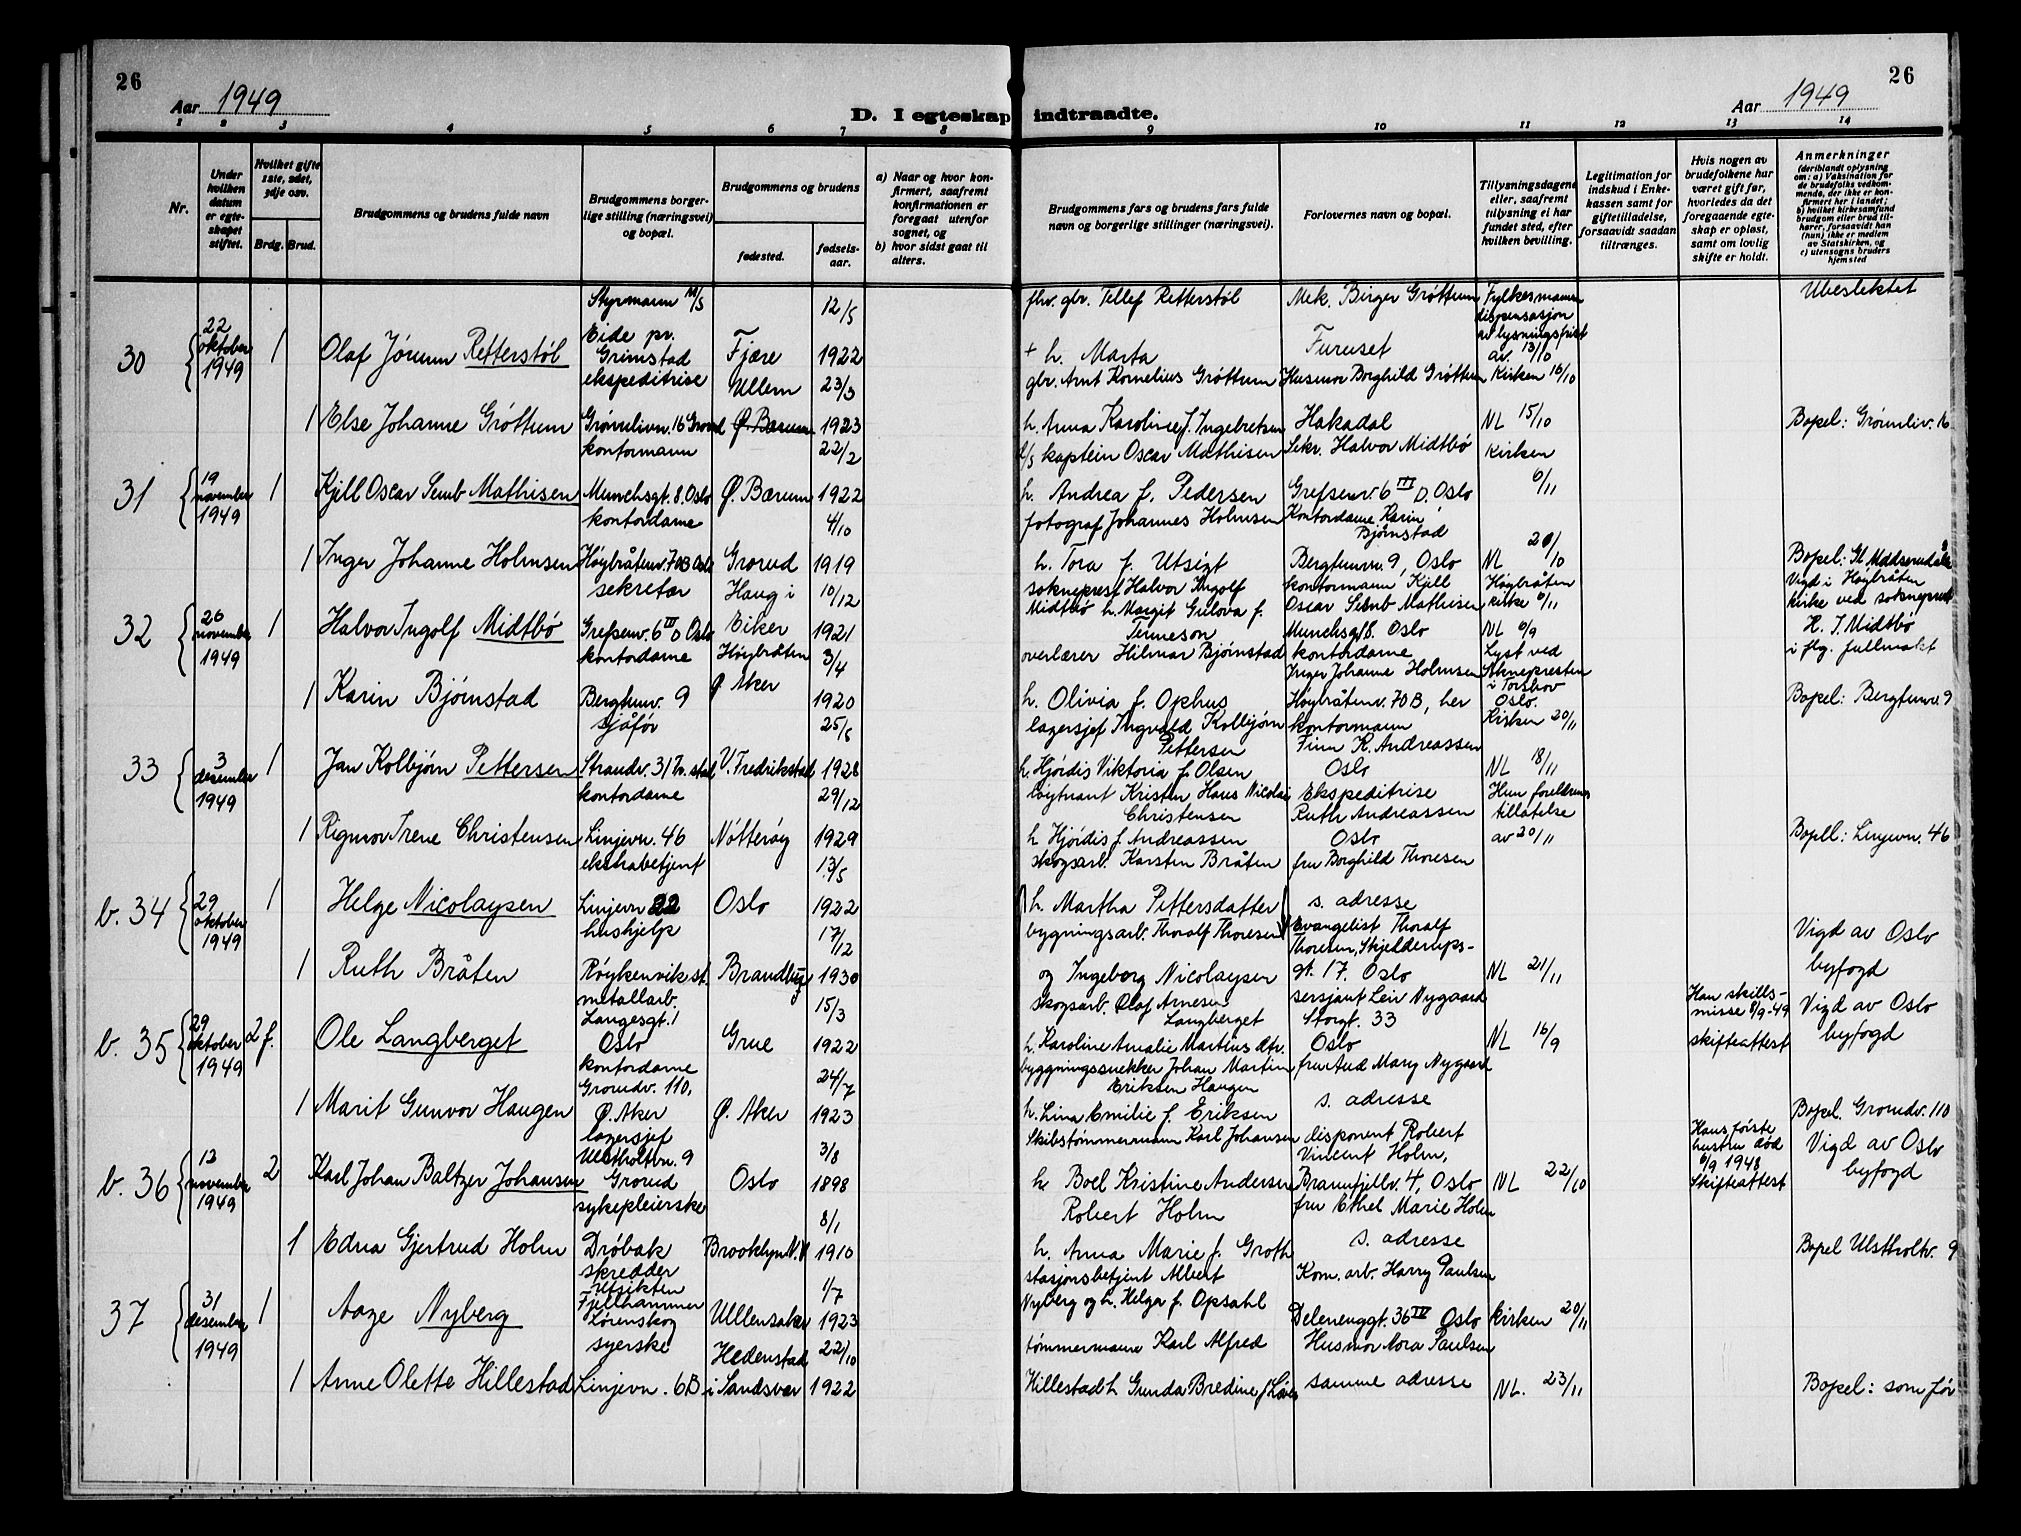 26
Aar 1949
D. I egteskap indtraadte.
Aar 1949
26
1 2 3 4 5 6 7 8 9 10 11 12 13 14
Nr.
Under hvilken datum er egteskapet stiftet.
Hvilket gifte 1ste, 2det, 3dje osv.
Brdg. Brud.
Brudgommens og brudens fulde navn
Brudgommens borgerlige stilling (næringsvei) og bopæl.
Brudgommens og brudens
fødested.
fødselsaar.
a) Naar og hvor konfirmert, saafremt konfirmationen er foregaaet utenfor sognet, og
b) hvor sidst gaat til alters.
Brudgommens fars og brudens fars fulde navn og borgerlige stillinger (næringsvei).
Forlovernes navn og bopæl.
Tillysningsdagene eller, saafremt tillysning ei har fundet sted, efter hvilken bevilling.
Legitimation for indskud i Enkekassen samt for giftetilladelse, forsaavidt saadan tiltrænges.
Hvis nogen av brudefolkene har været gift før, hvorledes da det foregaaende egteskap er opløst, samt om lovlig skifte er holdt.
Anmerkninger
(deriblandt oplysning om: a) Vaksination for de brudefolks vedkommende, der ikke er konfirmert her i landet;
b) hvilket kirkesamfund brudgom eller brud tilhører, forsaavidt han (hun) ikke er medlem av Statskirken, og
c) utensogns bruders hjemsted
30
22 oktober 1949
1
Olaf Jørunn Retterstøl
Styrmann M/S Eide pr. Grimstad
Fjære
12/5 1922
fhv. gbr. Tellef Retterstøl
+ h. Marta
Mek. Birger Grøttum
Furuset
Fylkesmannen dispensasjon av lysningsfrist av. 13/10
Ubeslektet
1
Else Johanne Grøttum
ekspeditrise
Grønnlivn. 16 Grorud
Ullern
Ø. Bærum
23/3 1923
gbr. Arnt Kornelius Grøttum
h. Anna Karoline f. Ingebretsen
Husmor Borghild Grøttum
Hakadal
Kirken 16/10
NL 15/10
Bopel: Grønnliv. 16
31
19 november 1949
1
Kjell Oscar Semb Mathisen
kontormann
Munchsgt. 8. Oslo
Ø. Bærum
22/2 1922
kaptein Oscar Mathisen
h. Andrea f. Pedersen
Sekr. Halvor Midtbø
Grefsenv. 6 III O. Oslo
Kirken
6/11
1
Inger Johanne Holmsen
kontordame
Høybråtenv. 70B Oslo
Grorud
4/10 1919
fotograf Johannes Holmsen
h. Tora f. Utsigt
Kontordame Karin Bjørnstad
Bergtunv. 9, Oslo
NL 20/10
32
26 november 1949
1
Halvor Ingolf Midtbø
sekretær
Grefsenv. 6 III O Oslo
Haug i Eiker
10/12 1921
sokneprest Halvor Ingolf Midtbø h. Margit Gulova f. Tenneson
kontormann Kjell Oscar Semb Mathisen
Munchsgt 8. Oslo
Høybråten kirke 6/11
NL 6/9
Vigd i Høybråten kirke ved sokneprest H. I. Midtbø i flg. fullmakt
1
Karin Bjørnstad
kontordame
Bergtunv. 9
Høybråten
Ø Aker
3/4 1920
overlærer Hilmar Bjørnstad
h. Olivia f. Ophus
kontordame
Inger Johanne Holmsen
Høybråtenv. 70 B, her
Lyst ved Soknepresten i Torshov Oslo.
Bopel: Bergtunv. 9
33
3 desember 1949
1
Jan Kolbjørn Pettersen
sjåfør
V. Fredrikstad
25/5 1928
lagersjef Ingvald Kolbjørn Pettersen
h. Hjørdis Viktoria f. Olsen
kontormann
Finn K. Andreassen
Oslo
Kirken 20/11
NL 18/11
1
Rigmor Irene Christensen
kontordame
Linjevn. 46
Nøtterøy
29/12 1929
løytnant Kristen Hans Nicolai Christensen
h Hjørdis f. Andreassen
Ekspeditrise
Ruth Andreassen
Oslo
Hun foreldrenes tillatelse av 20/11
Bopell: Linjevn. 46
b. 34
29 oktober 1949
1
Helge Nicolaysen
ekstrabetjent
Linjevn 22
Oslo
13/5 1922
skogsarb. Karsten Bråten
h. Martha Pettersdatter
fru Borghild Thoresen
s. adresse
Vigd av Oslo byfogd
1
Ruth Bråten
hushjelp
Røykenvik st.
Brandbu
17/12 1930
bygningsarb. Thoralf Thoresen
og Ingeborg Nicolaysen
Evangelist Thoralf Thoresen, Skjelderups-gt. 17. Oslo
NL 21/11
b. 35
29 oktober 1949
2 f.
Ole Langberget
metallarb.
Langesgt. 1
Oslo
Grue
15/3 1922
skogsarb. Olaf Arnesen Langberget
h. Karoline Amalie Martius dtr.
sersjant Leiv Nygaard
Storgt. 33
Oslo
NL 16/9
Han skills-misse 8/9-49
skifteattest
Vigd av Oslo byfogd
1
Marit Gunvor Haugen
kontordame
Grorudv. 110,
Ø. Aker
Ø. Aker
24/7 1923
byggningssnekker Johan Martin Eriksen Haugen
h. Lina Emilie f. Eriksen
fru Aud Mary Nygaard
s. adresse
Bopel. Grorudv. 110
b. 36
12 november 1949
2
Karl Johan Baltzer Johansen
lagersjef
Ulstholtvn. 9
Grorud
Oslo
3/8 1898
Skibstømmermann Karl Johansen
h. Boel Kristine Andersen
disponent Robert Vincent Holm,
Bramfjellv. 4, Oslo
NL 22/10
Hans første hustru død 6/9 1948
Skifteattest
Vigd av Oslo byfogd
1
Edna Gjertrud Holm
sykepleierske
Drøbak
Brooklyn N.Y
8/1 1910
Robert Holm
h. Anna Marie f. Groth
fru Ethel Marie Holm
s. adresse
Bopel Ulstholtv. 9
37
31 desember 1949
1
Aage Nyberg
skredder
Utsikten
Fjellhammer
Lørenskog
Ullensaker
1/7 1923
stasjonsbetjent Albert Nyberg og h. Helga f. Opsahl
Kom. arb. Harry Paulsen
Delenenggt. 36 IV Oslo
kirken 20/11
1
Anne Olette Hillestad
syerske
Linjevn. 6B
Hedenstad i Sandsvær
22/10 1922
tømmermann Karl Alfred Hillestad h Gunda Bredine
Husmor Nora Paulsen
samme adresse
NL. 23/11
Bopel: som før